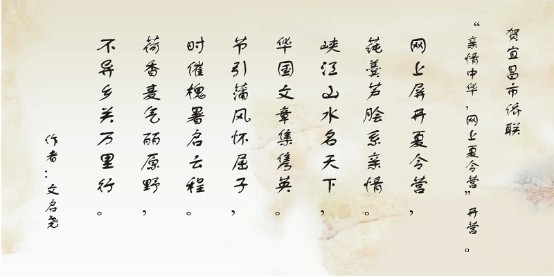 贺宜昌市侨联
“亲情中华，网上夏令营”开营。
网上屏开夏令营，
莼羹芳脍系亲情。
峡江山水名天下，
华国文章集隽英。
节引蒲风怀屈子，
时催槐署启云程。
荷香麦气丽原野，
不异乡关万里行。
作者：文启尧